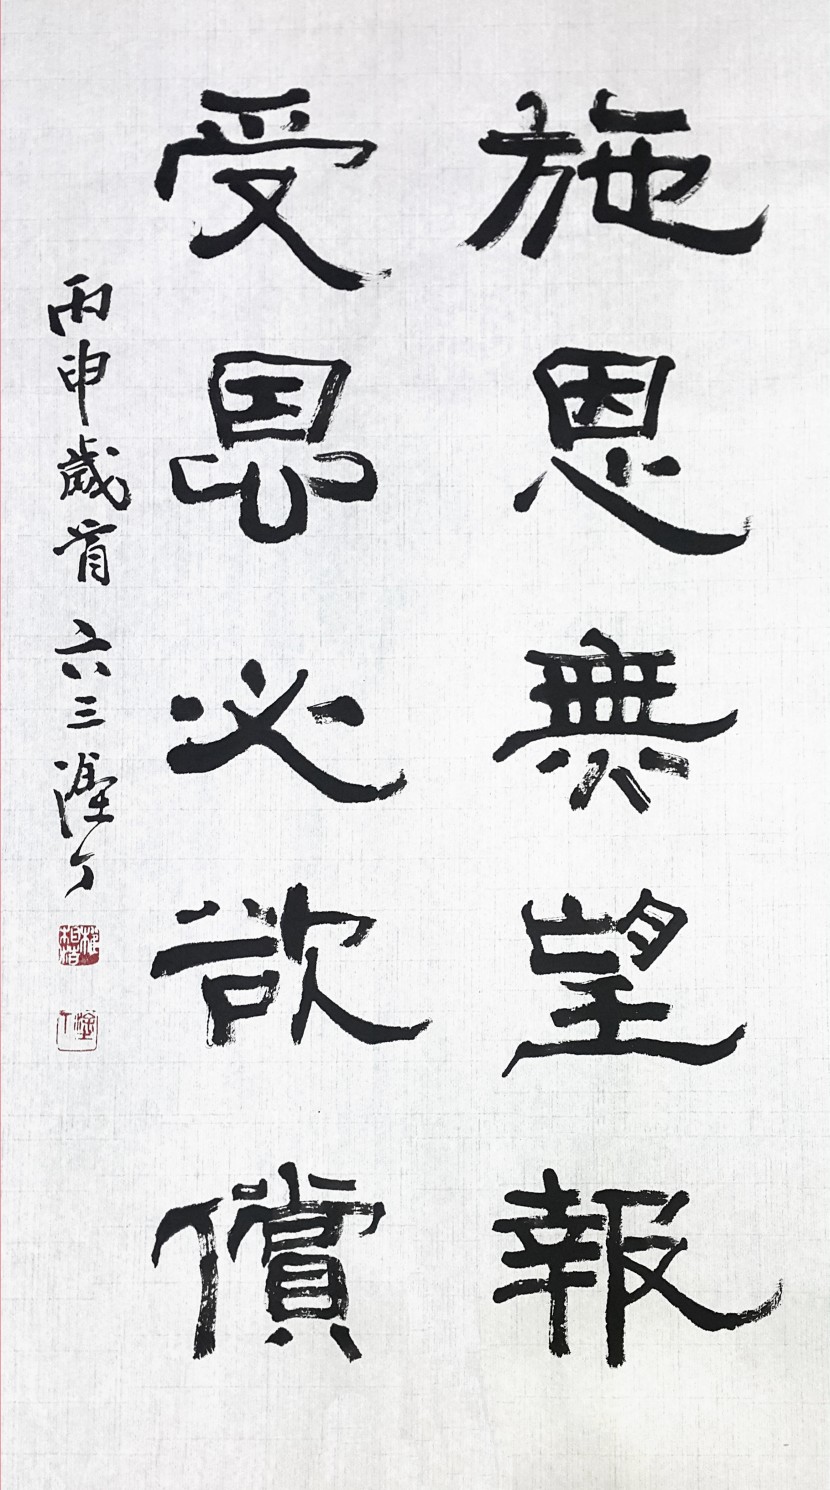 施恩無望報
受恩必欲償
丙申歲首 六三